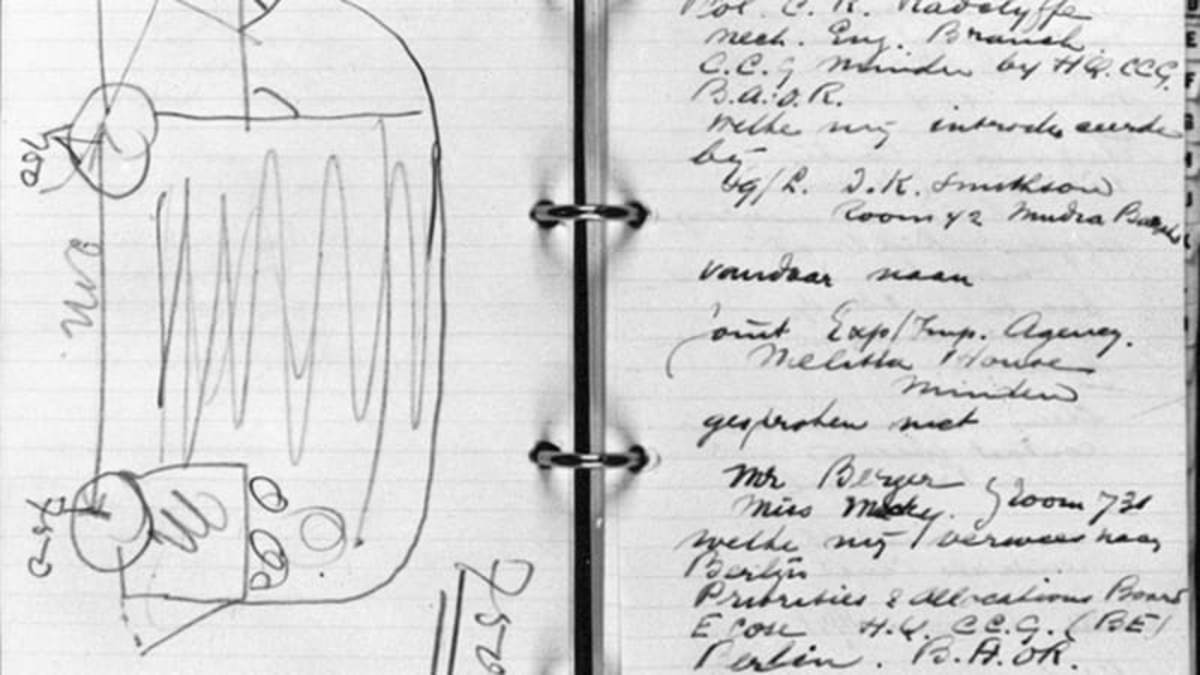 Col. C. R. Radclyffe
Mech. Eng. Branch.
C.C.G Minden by H.Q. CCG.
B.A.O.R.
Welke mij introduceerde
by
J.K. Smithson
Room 42 Mudra
vandaar naar
Joint Exp/Imp. Agency.
Melitta House
Minden
gesproken met
Mr Berger
Miss Room 731
welke mij verwees naar
Berlijn
Priorities & Allocations Board
H.Q. CC.G. (BE)
Berlin. B.A.OR.